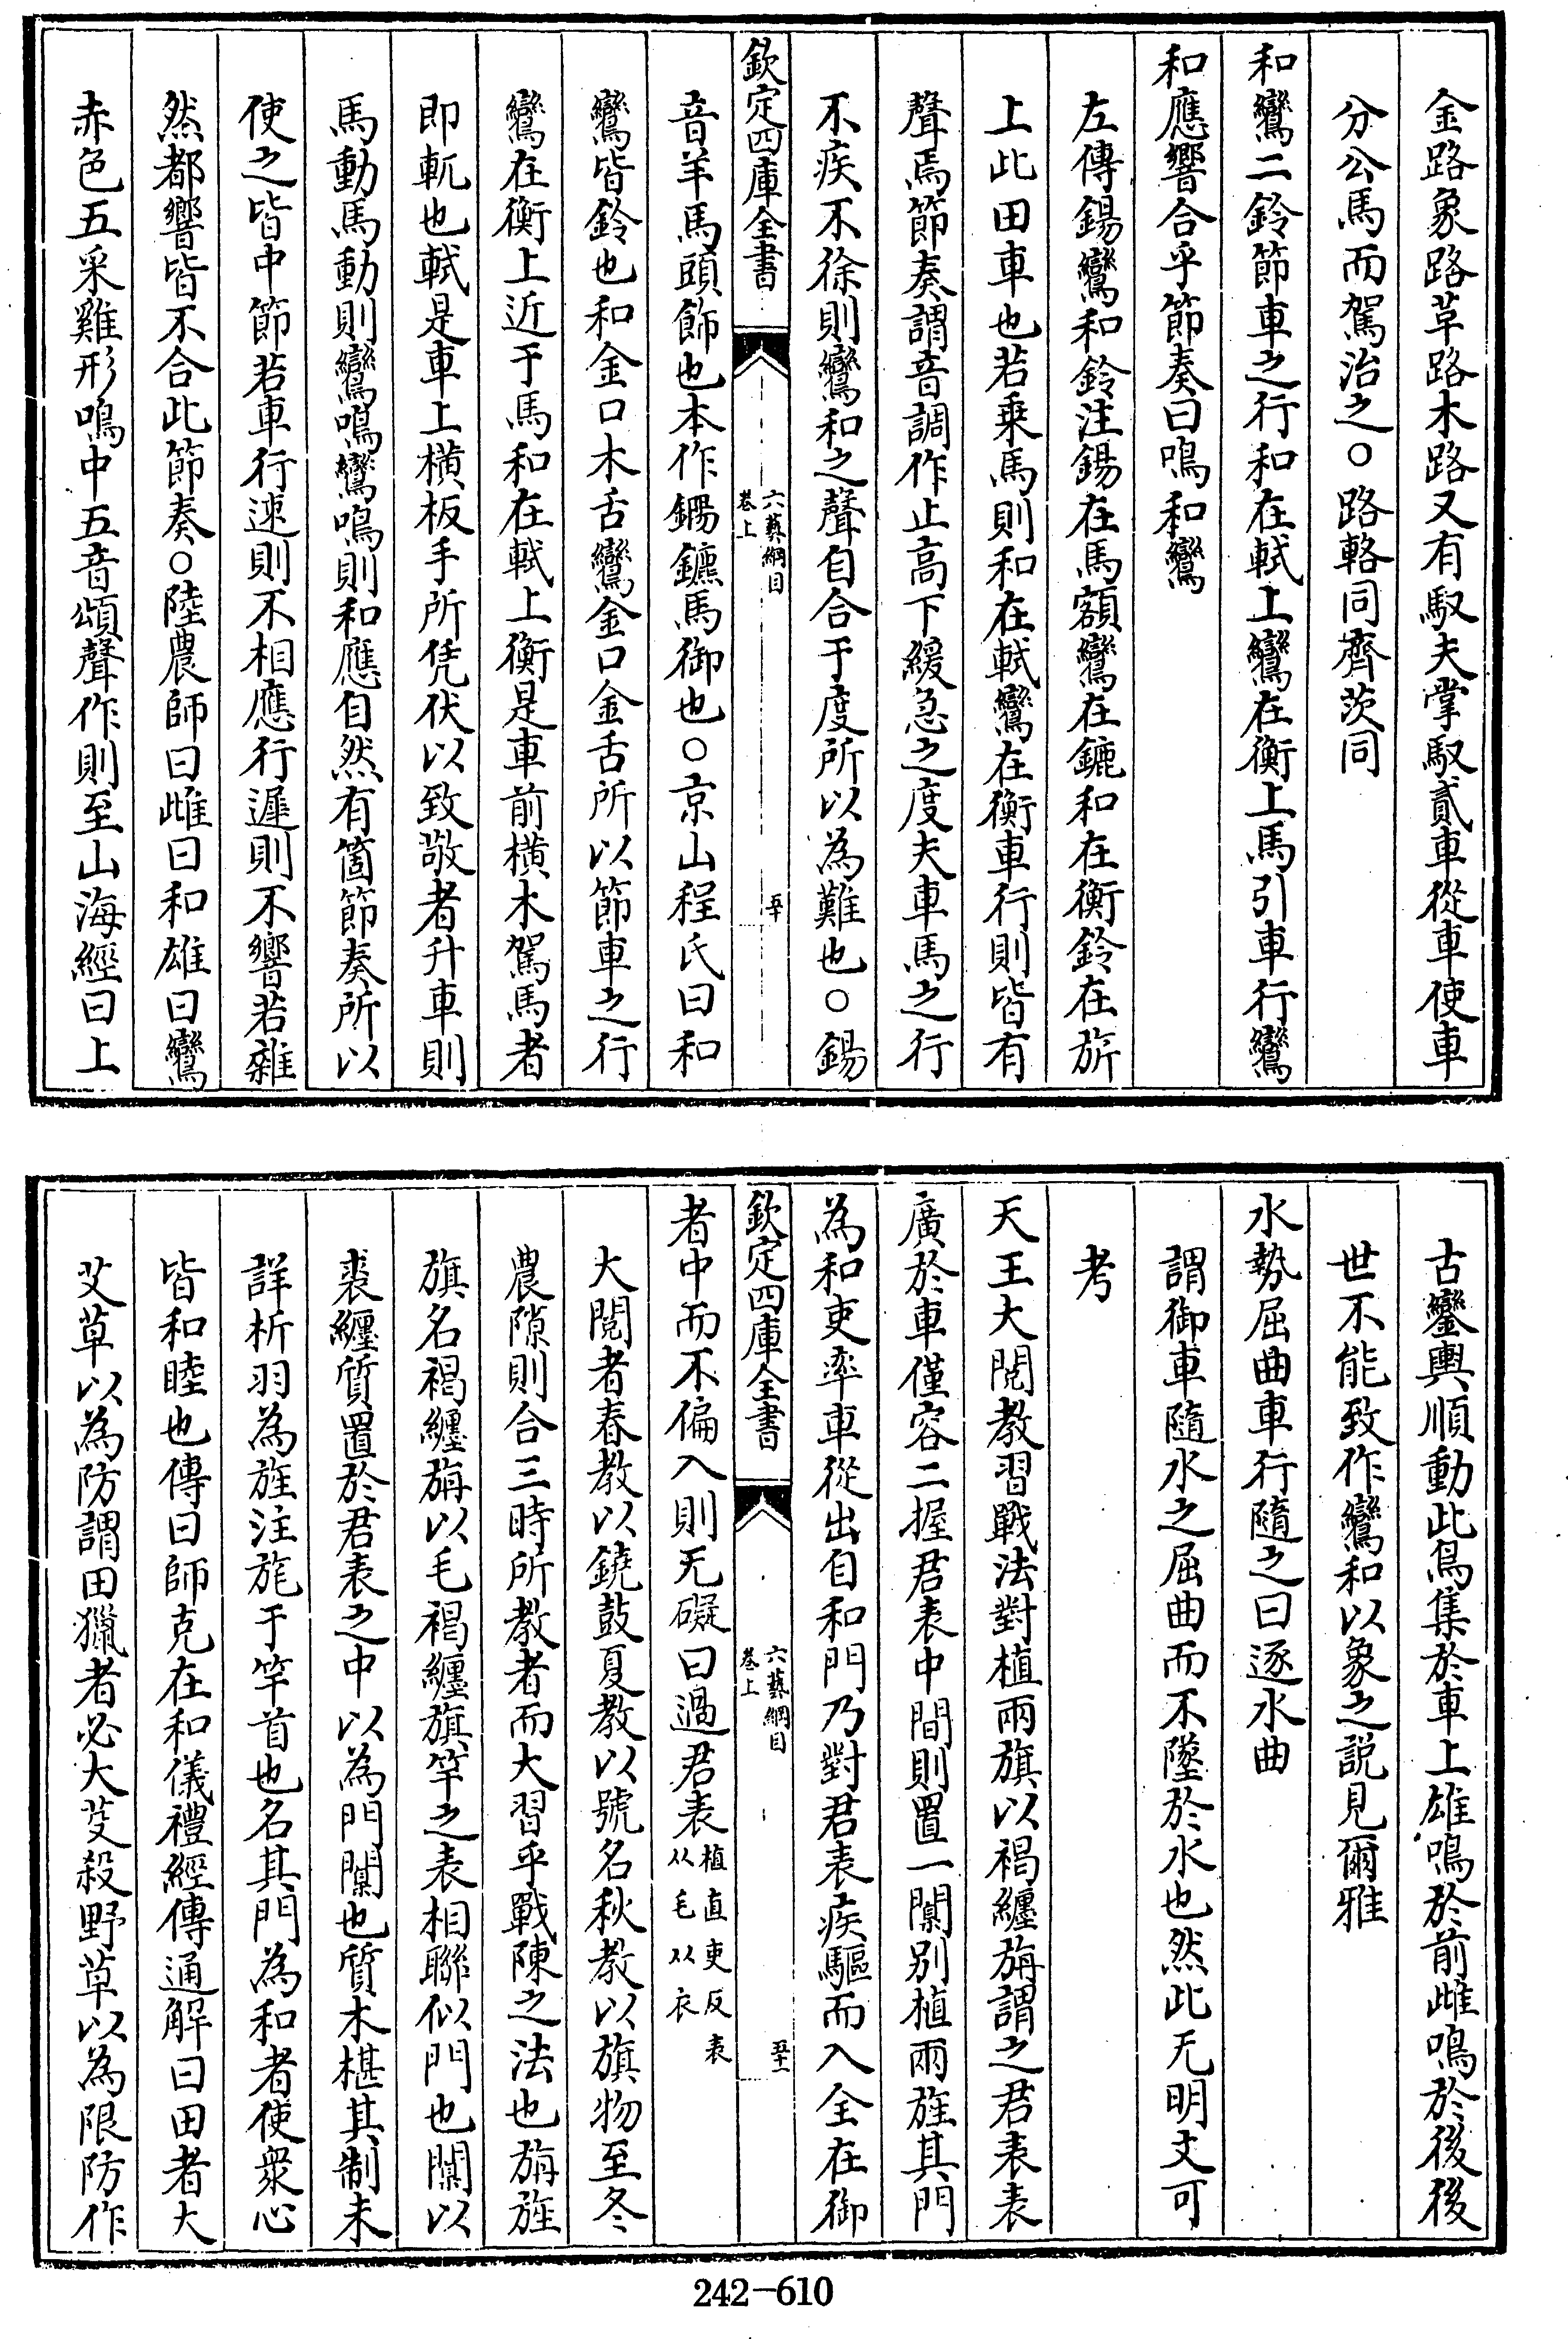 金路象路革路木路又有馭夫掌馭貳車從車使車
分公馬而駕治之○路輅同齊茨同
和鸞二鈴節車之行和在軾上鸞在衡上馬引車行鸞
和應響合乎節奏曰鳴和鸞
左傳鍚鸞和鈴注鍚在馬額鸞在鑣和在衡鈴在旂
上此田車也若乘馬則和在軾鸞在衡車行則皆有
聲焉節奏謂音調作止高下緩急之度夫車馬之行
不疾不徐則鸞和之聲自合于度所以為難也○鍚
欽定四庫全書
六藝綱目
卷上
五十
音羊馬頭飾也本作鐊鑣馬御也○京山程氏曰和
鸞皆鈴也和金口木舌鸞金口金舌所以節車之行
鸞在衡上近于馬和在軾上衡是車前橫木駕馬者
即軏也軾是車上橫板手所凭伏以致敬者升車則
馬動馬動則鸞鳴鸞鳴則和應自然有箇節奏所以
使之皆中節若車行速則不相應行遲則不響若雜
然都響皆不合此節奏○陸農師曰雌曰和雄曰鸞
赤色五采雞形鳴中五音頌聲作則至山海經曰上
古鑾輿順動此鳥集於車上雄鳴於前雌鳴於後後
世不能致作鸞和以象之説見爾雅
水勢屈曲車行隨之曰逐水曲
謂御車隨水之屈曲而不墜於水也然此无明文可
考
天王大閲教習戰法對植兩旗以褐纏旃謂之君表表
廣於車僅容二握君表中間則置一闑别植兩旌其門
為和吏率車從出自和門乃對君表疾驅而入全在御
欽定四庫全書
六藝綱目
卷上
五十一
者中而不偏入則无礙曰過君表植直吏反表从毛从衣
大閲者春教以鐃鼓夏教以號名秋教以旗物至冬
農隙則合三時所教者而大習乎戰陳之法也旃旌
旗名褐纏旃以毛褐纏旗竿之表相聯似門也闑以
裘纏質置於君表之中以為門闑也質木椹其制未
詳析羽為旌注旄于竿首也名其門為和者使衆心
皆和睦也傳曰師克在和儀禮經傳通解曰田者大
艾草以為防謂田獵者必大芟殺野草以為限防作
242-610